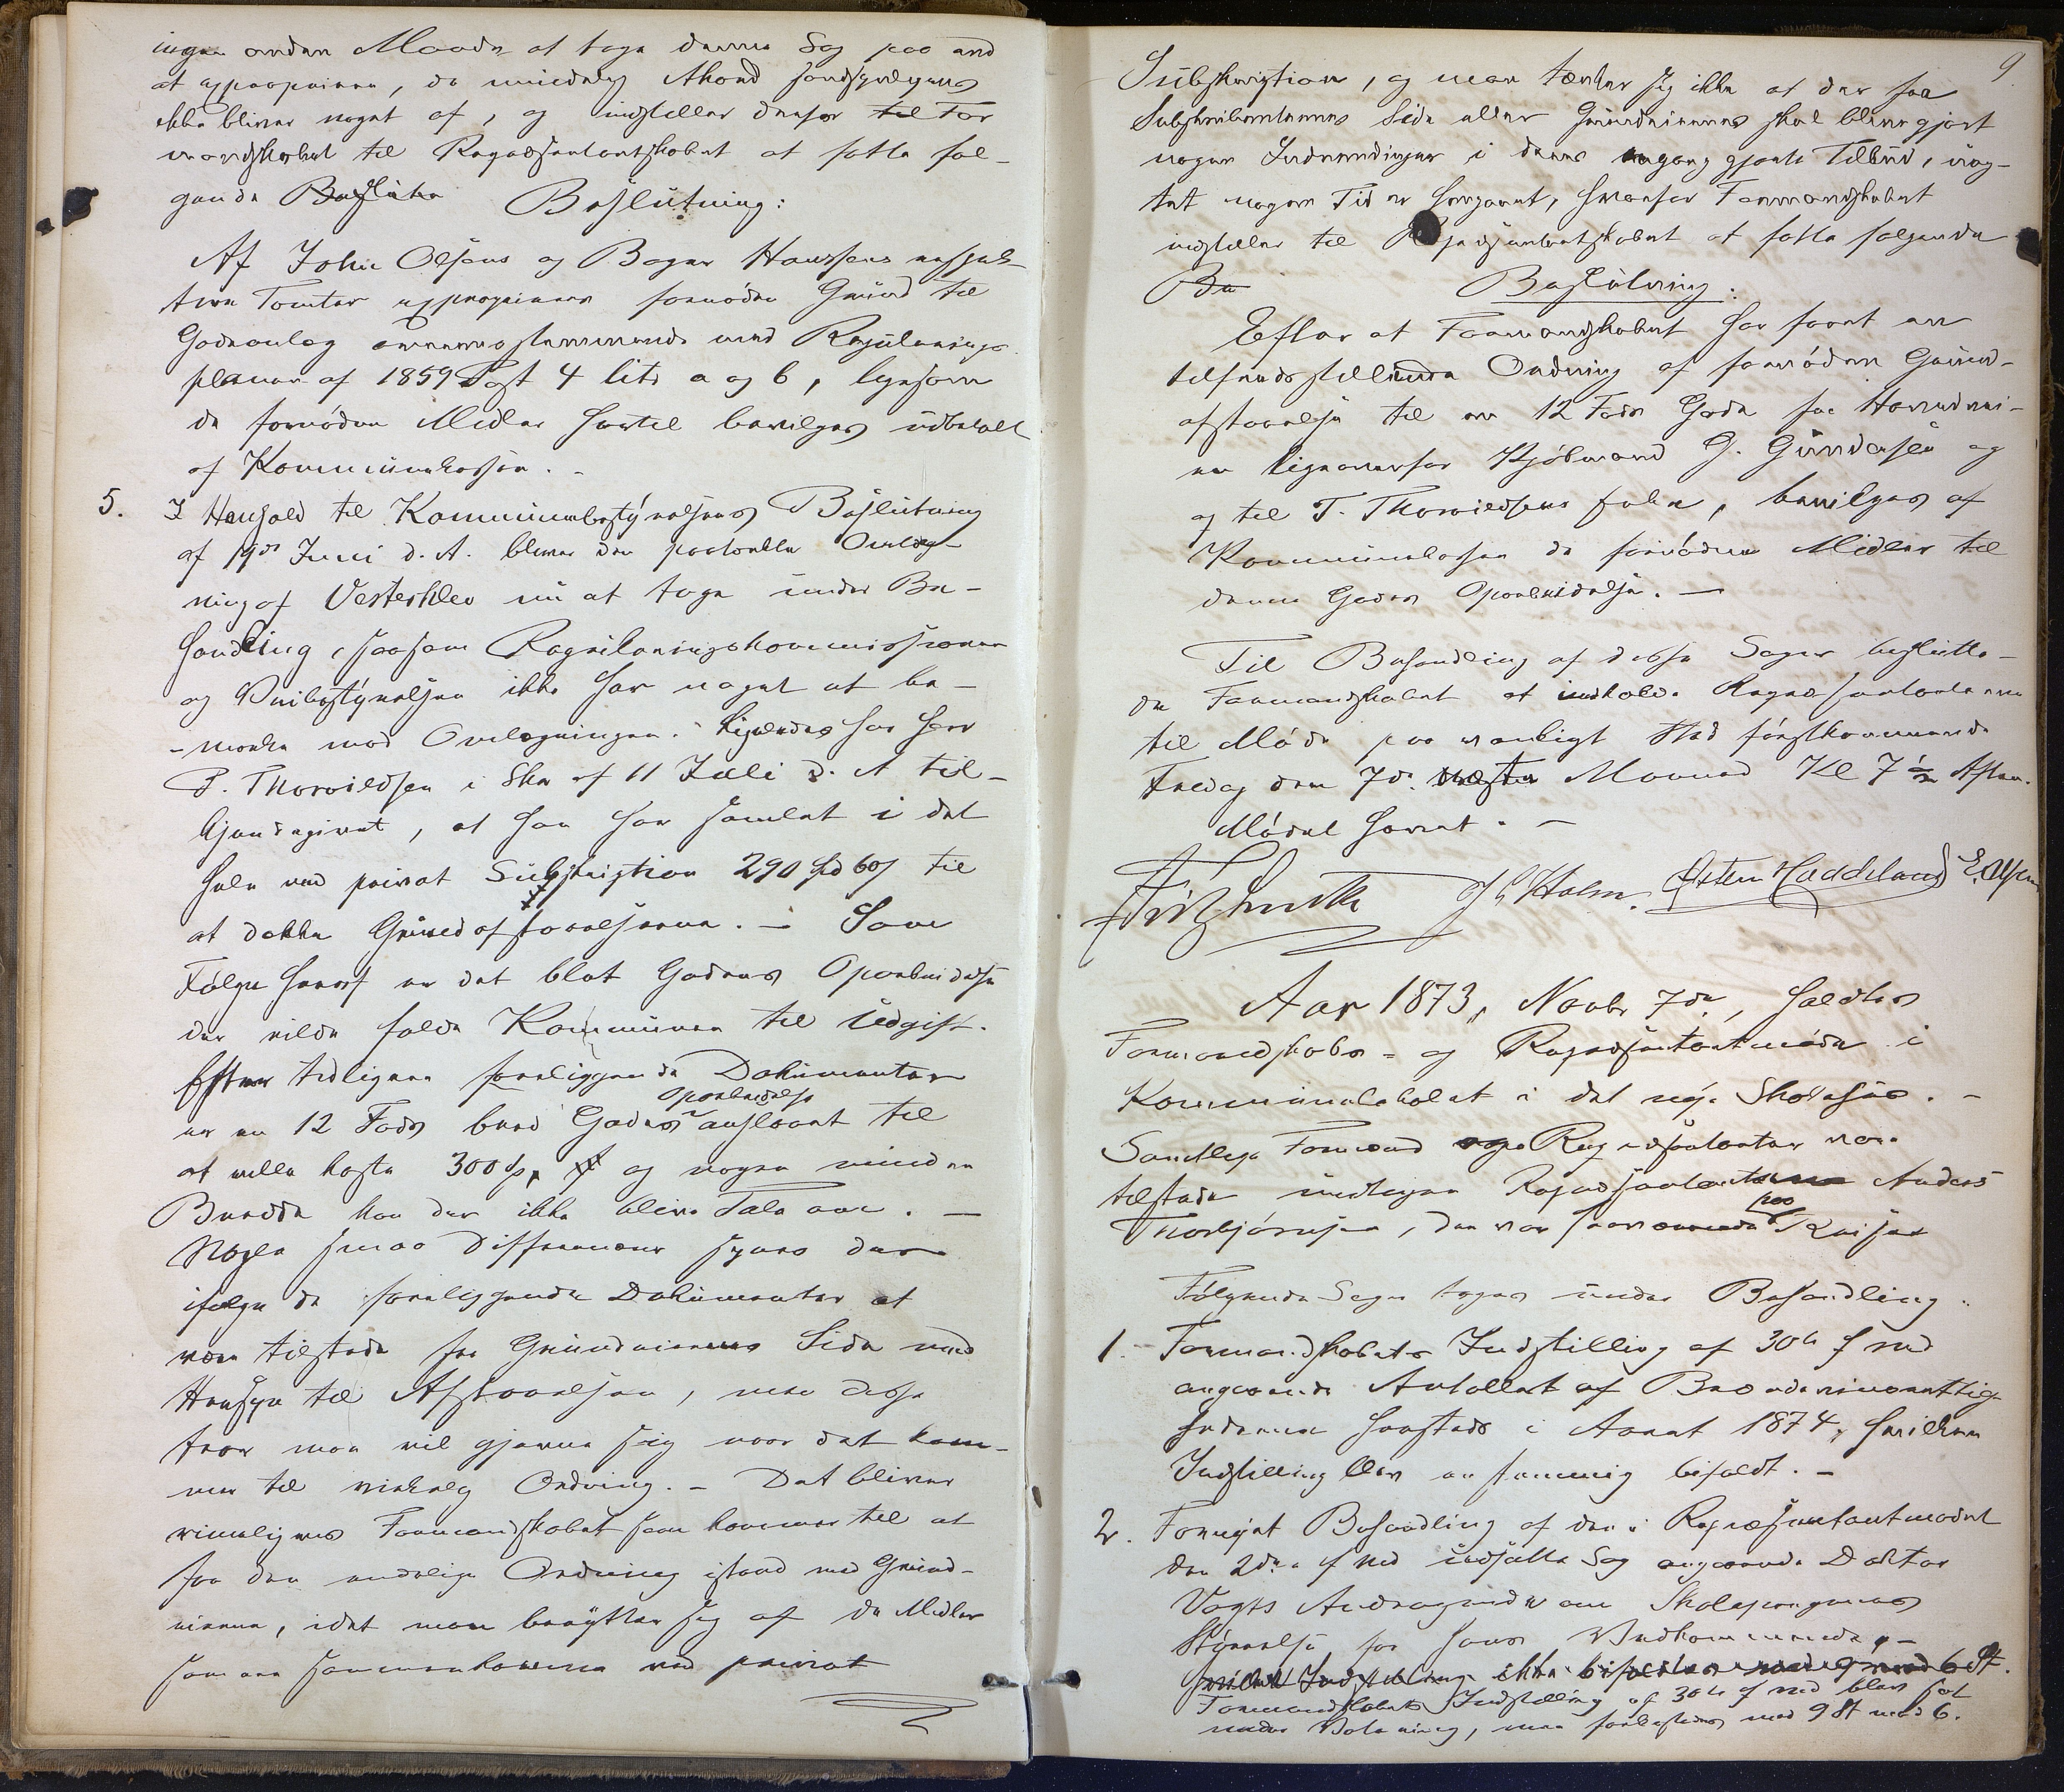 ingen anden Maade at tage denne Sag paa end
at expropriere, da mindelig Akord sandsynligviis
ikke bliver noget af, og indstiller derfor til For
mandskabet til Repræsentantskabet at fatte føl-
gende Beslutn Beslutning:
Af John Olsens og Berger Hanssens respek-
tive Tomter exproprieres fornöden Grund til
Gadeanlæg overensstemmende med Regulerings
planen af 1859 Post 4 litr a og b, ligesom
de fornödne Midler hertil bevilges udbetalt
af Kommunekassen. -
5. I Henhold til Kommunebestyrelsens Beslutning
af 19de Juni d. A. bliver den partielle Omlæg-
ning af Vesterklev nu at tage under Be-
handling, saasom Reguleringskommissionen
og Veibestyrelsen ikke har noget at be-
- mærke mod Omlægningen. Ligeledes har Herr
T. Thorvildsen i Skr af 11 Juli d. A til-
kjendegivet, at han har samlet i det
hele ved privat Subskription 290 Spd 60 s til
at dække Grundafstaaelserne. - Som
Følge heraf er det blot Gadens Oparbeidelse
der vilde falde Kommunen til Udgift.
Efter tidligere foreliggende Dokumenter
er en 12 Fods bred Gades Oparbeidelse anslaaet til
at ville koste 300 Sp, og nogen mindre
Bredde kan der ikke blive Tale om. -
Nogle smaa Differencer synes der
ifølge de foreliggende Dokumenter at
være tilstede fra Grundeiernes Side med
Hensyn til Afstaaelsen, men disse
troer man vil gjerne sig naar det kom-
mer til virkelig Ordning. - Det bliver
rimeligvis Formandskabet som kommer til at
faa den endelige Ordning istand med Grund-
eierne, idet man benytter sig af de Midler
som ere sammenkomne ved privat
9
Subskription, og man tænker sig ikke at der fra
Subskribenternes Side eller Grundeiernes skal blive gjort
nogen Indvendinger i deres engang gjorte Tilbud, uag-
tet nogen Tid er hengaaet, hvorfor Formandskabet
indstiller til Repræsentantskabet at fatte følgende
Be Beslutning:
Efter at Formandskabet har faaet en
tilfredsstillende Ordning af fornöden Grund-
afstaaelse til en 12 Fods Gade fra Hovedvei-
en ligeoverfor Kjöbmand G. Gundersen og
og til T. Thorvildsens , bevilges af
Kommunekassen de fornödne Midler til
denne Gades Oparbeidelse. -
Til Behandling af disse Sager beslutte-
de Formandskabet at indkalde Repræsentanterne
til Möde paa vanligt Sted förstkommende
Fredag den 7de næste Maaned Kl 7 1/2 Aften.
Mödet hævet. -
Fritz Smith J C Holm. Østen Haddeland E. Olsen
Aar 1873, Novbr 7de, holdtes
Formandskabs- og Repræsentantmöde i
Kommunelokalet i det nye Skolehuus. -
Samtlige Formænd og Repræsentanter vare
tilstede undtagen Repræsentanterne Anders
Thorbjörnsen, der var fraværende paa Reiser
Følgende Sager toges under Behandling:
1. Formandskabets Indstilling af 30te f md
angaaende Antallet af Brændeviinsrettig-
hederne hersteds i Aaret 1874, hvilken
Indstilling blev enstemmig bifaldt. -
2. Fornyet Behandling af den i Repræsentantmödet
den 2den f md udsatte Sag angaaende Doktor
Vogts Andragende om Skolepengenes
for hans Vedkommende, -
hvilken Indstilling ikke bifaldtes med 9 mod 6 St.
Formandskabets Indstilling af 30te f md blev sat
under Votering, men forkastedes med 9 St mod 6.